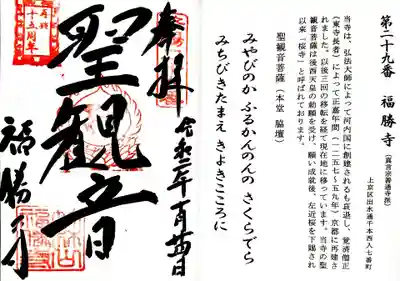 第二十九番　福勝寺（真言宗善通寺派）
上京区出水通千本西入七番町
当寺は、弘法大師によって河内国に創建されるも衰退し、覚済僧正
（東寺長者）によって正嘉年間（一二五七～五九年）京都に再建さ
れました。以後三回の移転を経て現在地に移っています。当寺の聖
観音菩薩は後西天皇の勅願を受け、願い成就後、左近桜を下賜され
以来「桜寺」と呼ばれております。
聖観音菩薩（本堂 脇壇）
みやびのか ふるかんのんの さくらでら
みちびきたまえ きよきこころに
奉拝
聖観音
福勝寺